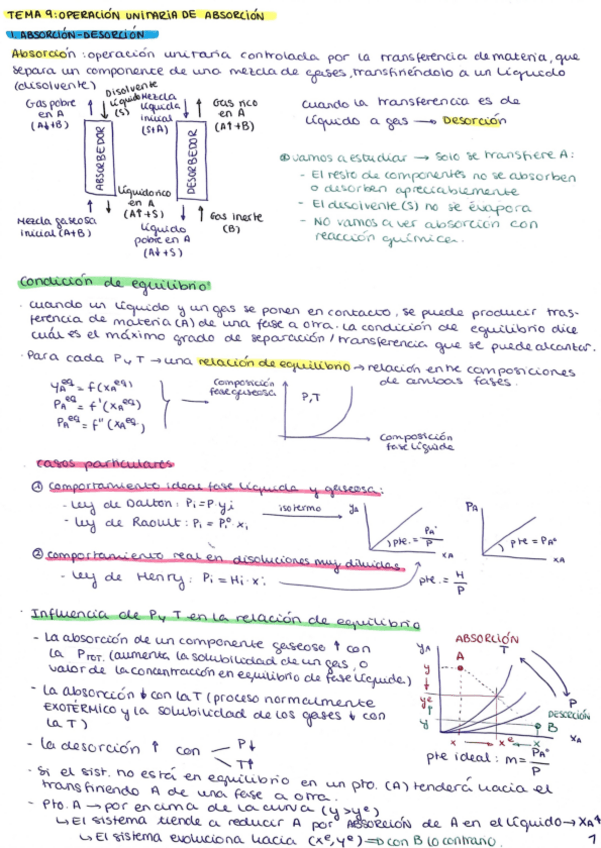 TEMA 9: OPERACIÓN UNITARIA DE ABSORCIÓN
1. ABSORCIÓN-DESORCIÓN
Absorción: operación unitaria controlada por la transferencia de materia, que
separa un componente de una mezcla de gases, transfiriéndolo a un líquido
(disolvente)
Gas pobre en A (A↓+B)
Disolvente líquido (S)
Mezcla líquida inicial (S+A)
Gas rico en A (A↑+B)
ABSORBEDOR
DESORBEDOR
Mezcla gaseosa inicial (A+B)
Líquido rico en A (A↑+S)
Líquido pobre en A (A↓+S)
Gas inerte (B)
cuando la transferencia es de
líquido a gas → Desorción
vamos a estudiar → solo se transfiere A:
- El resto de componentes no se absorben
o desorben apreciablemente
- El disolvente (S) no se evapora
- NO vamos a ver absorción con
reacción química.
Condición de equilibrio
· cuando un líquido y un gas se ponen en contacto, se puede producir tras-
ferencia de materia (A) de una fase a otra. La condición de equilibrio dice
cuál es el máximo grado de separación / transferencia que se puede alcanzar.
· Para cada P y T → una relación de equilibrio → relación entre composiciones
de ambas fases.
yA^eq = f(xA^eq)
PA^eq = f'(xA^eq)
PA^eq = f''(xA^eq)
composición fase gaseosa
P,T
composición fase líquida
· casos particulares
① comportamiento ideal fase líquida y gaseosa:
- Ley de Dalton: Pi = P·yi
- Ley de Raoult: Pi = Pi°·xi
isotermo
yA
pte. = PA°/P
xA
PA
pte = PA°
xA
② comportamiento real en disoluciones muy diluidas
- Ley de Henry: Pi = Hi·xi
pte. = H/P
· Influencia de P y T en la relación de equilibrio
- La absorción de un componente gaseoso ↑ con
la PTOT. (aumenta la solubilidad de un gas, o
valor de la concentración en equilibrio de fase líquida)
- La absorción ↓ con la T (proceso normalmente
EXOTÉRMICO y la solubilidad de los gases ↓ con
la T)
- la desorción ↑ con P↓
T↑
yA
ABSORCIÓN
A
T
y
ye
y
P
DESORCIÓN
B
x → xe ← x
xA
pte ideal: m = PA°/P
- Si el sist. no está en equilibrio en un pto. (A) tenderá hacia el
transfiriendo A de una fase a otra.
- Pto. A → por encima de la curva (y > ye)
↳ El sistema tiende a reducir A por ABSORCIÓN de A en el líquido → xA↑
↳ El sistema evoluciona hacia (xe, ye) ⇒ con B lo contrario.
1